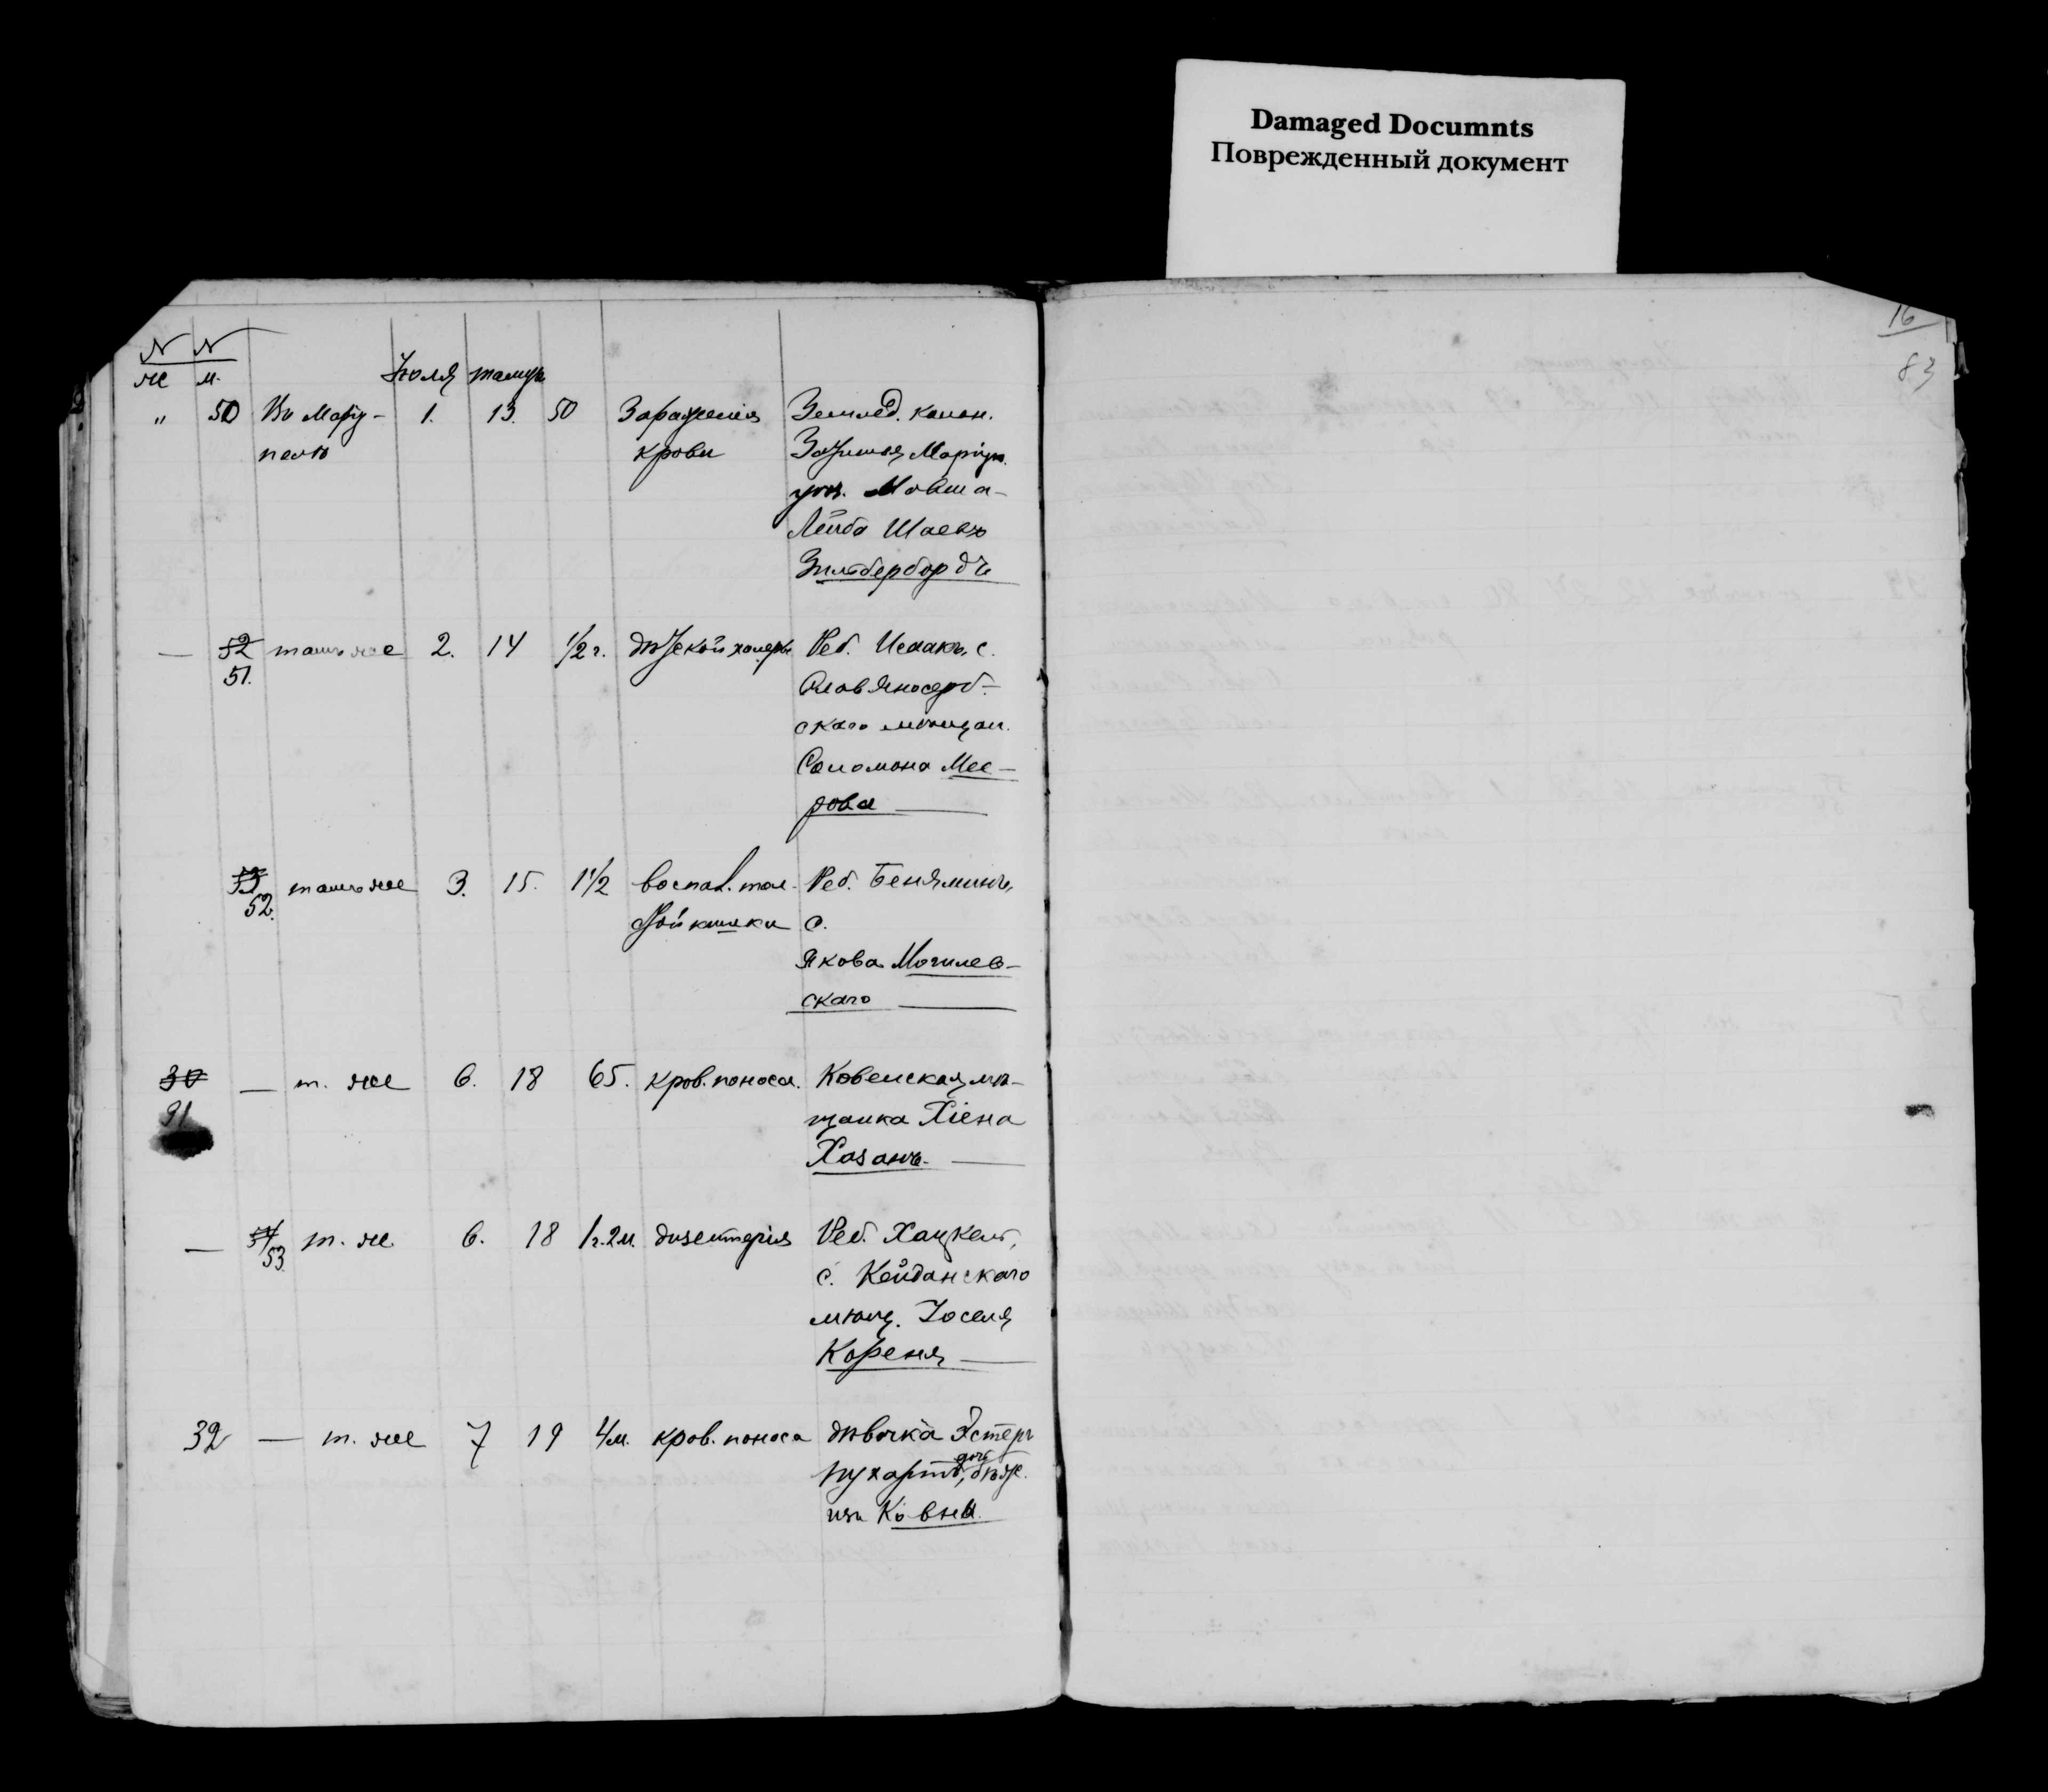 Damaged Documnts
Поврежденный документ
16
83
N N
ж м.
Іюля тамуз
" 50 Въ Маріу- 1. 13. 50 Зараженія Землед. колон.
полѣ крови Затишья Маріуп.
уѣз. Мовша-
Лейба Шаевъ
Зильбербордъ
— 52 тамъ же 2. 14 1/2 г. дѣтской холеры Реб. Исаакъ, с.
51. Славяносерб-
скаго мѣщан.
Соломона Мее-
рова
53 тамъ же 3. 15. 1 1/2 воспал. тол- Реб. Беняминъ,
52. стой кишки с.
Якова Могилев-
скаго
30 — т. же 6. 18 65. кров. поноса. Ковенская мѣ-
31 щанка Хіена
Хазанъ.
— 54 т. же 6. 18 1 г. 2 м. дизентерія Реб. Хацкель,
53. с. Кейданскаго
мѣщ. Іоселя
Кореня
32 — т. же 7 19 4 м. кров. поноса дѣвочка Эстеръ
дочь
бѣж.
изъ Ковны.